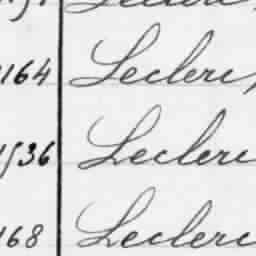 164 Leclerc,
1536 Leclerc
168 Leclerc